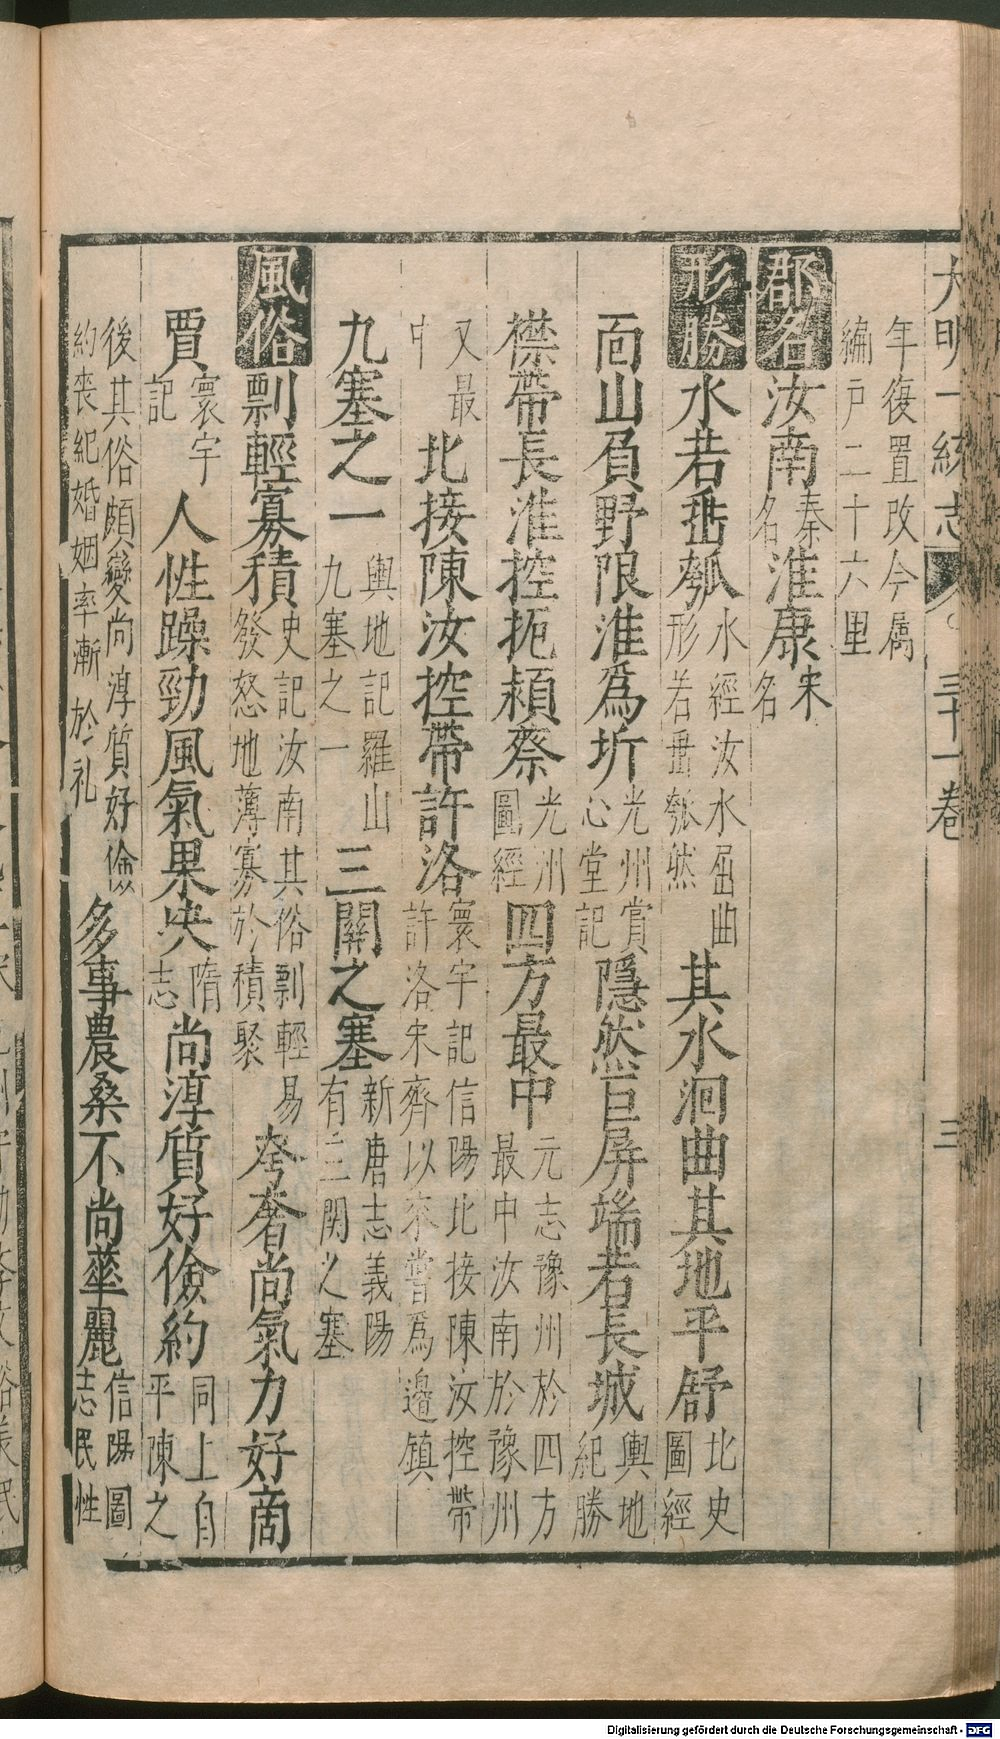 大明一統志 三十一卷 三
年復置改今属
編戶二十六里
郡名 汝南 秦名 淮康 宋名
形勝 水若垂瓠 水經汝水屈曲形若垂瓠然 其水洄曲其地平舒 北史圖經
面山負野限淮為圻 光州賞心堂記 隱然巨屏端若長城 輿地紀勝
襟帶長淮控扼潁蔡 光州圖經 四方最中 元志豫州於四方最中汝南於豫州
又最中 北接陳汝控帶許洛 寰宇記信陽北接陳汝控帶許洛宋齊以來嘗爲邊鎮
九塞之一 輿地記羅山九塞之一 三關之塞 新唐志義陽有三関之塞
風俗 剽輕寡積 史記汝南其俗剽輕易發怒地薄寡於積聚 夸奢尚氣力好商
賈 寰宇記 人性躁勁風氣果决 隋志 尚淳質好儉約 同上自平陳之
後其俗頗變尚淳質好儉約喪紀婚姻率漸於礼 多事農桑不尚華麗 信陽圖志民性
Digitalisierung gefördert durch die Deutsche Forschungsgemeinschaft - DFG